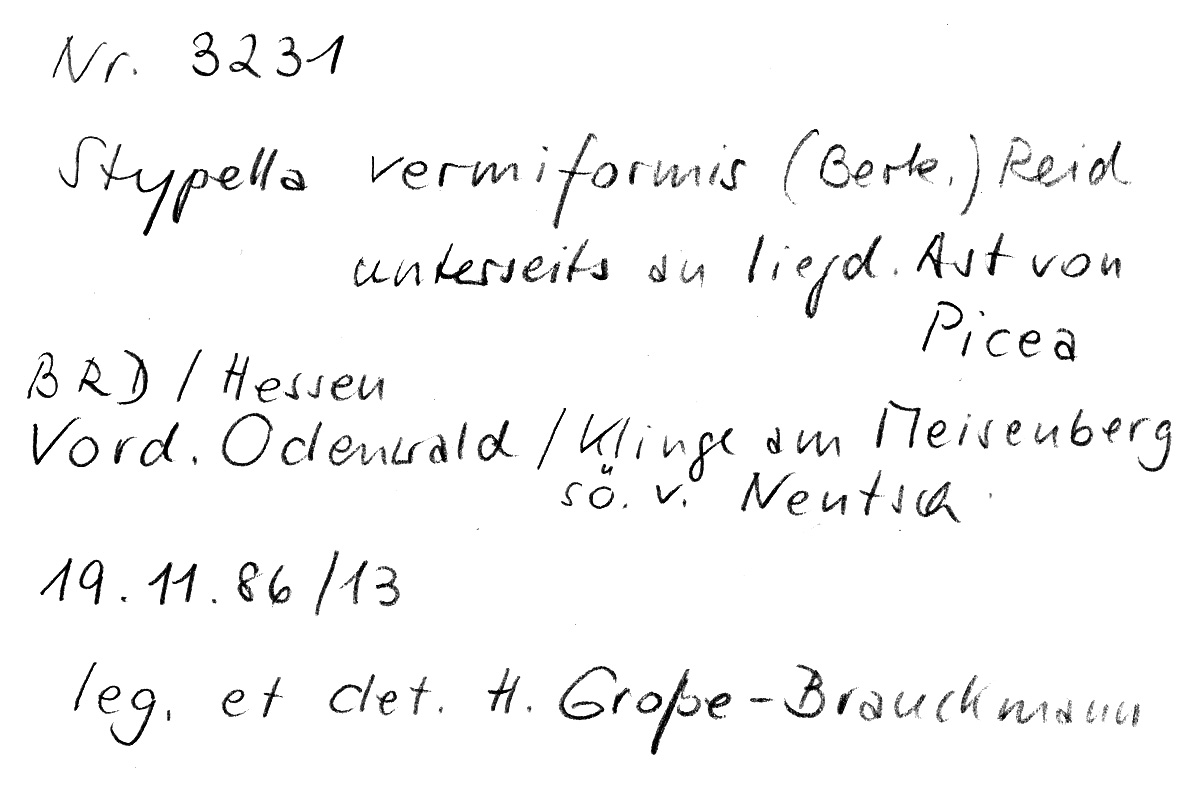 Nr. 3231
Stypella vermiformis (Berk.) Reid
unterseits an liegd. Ast von
Picea
BRD / Hessen
Vord. Odenwald / Klinge am Meisenberg
sö. v. Neutsch
19.11.86/13
leg. et det. H. Große-Brauckmann